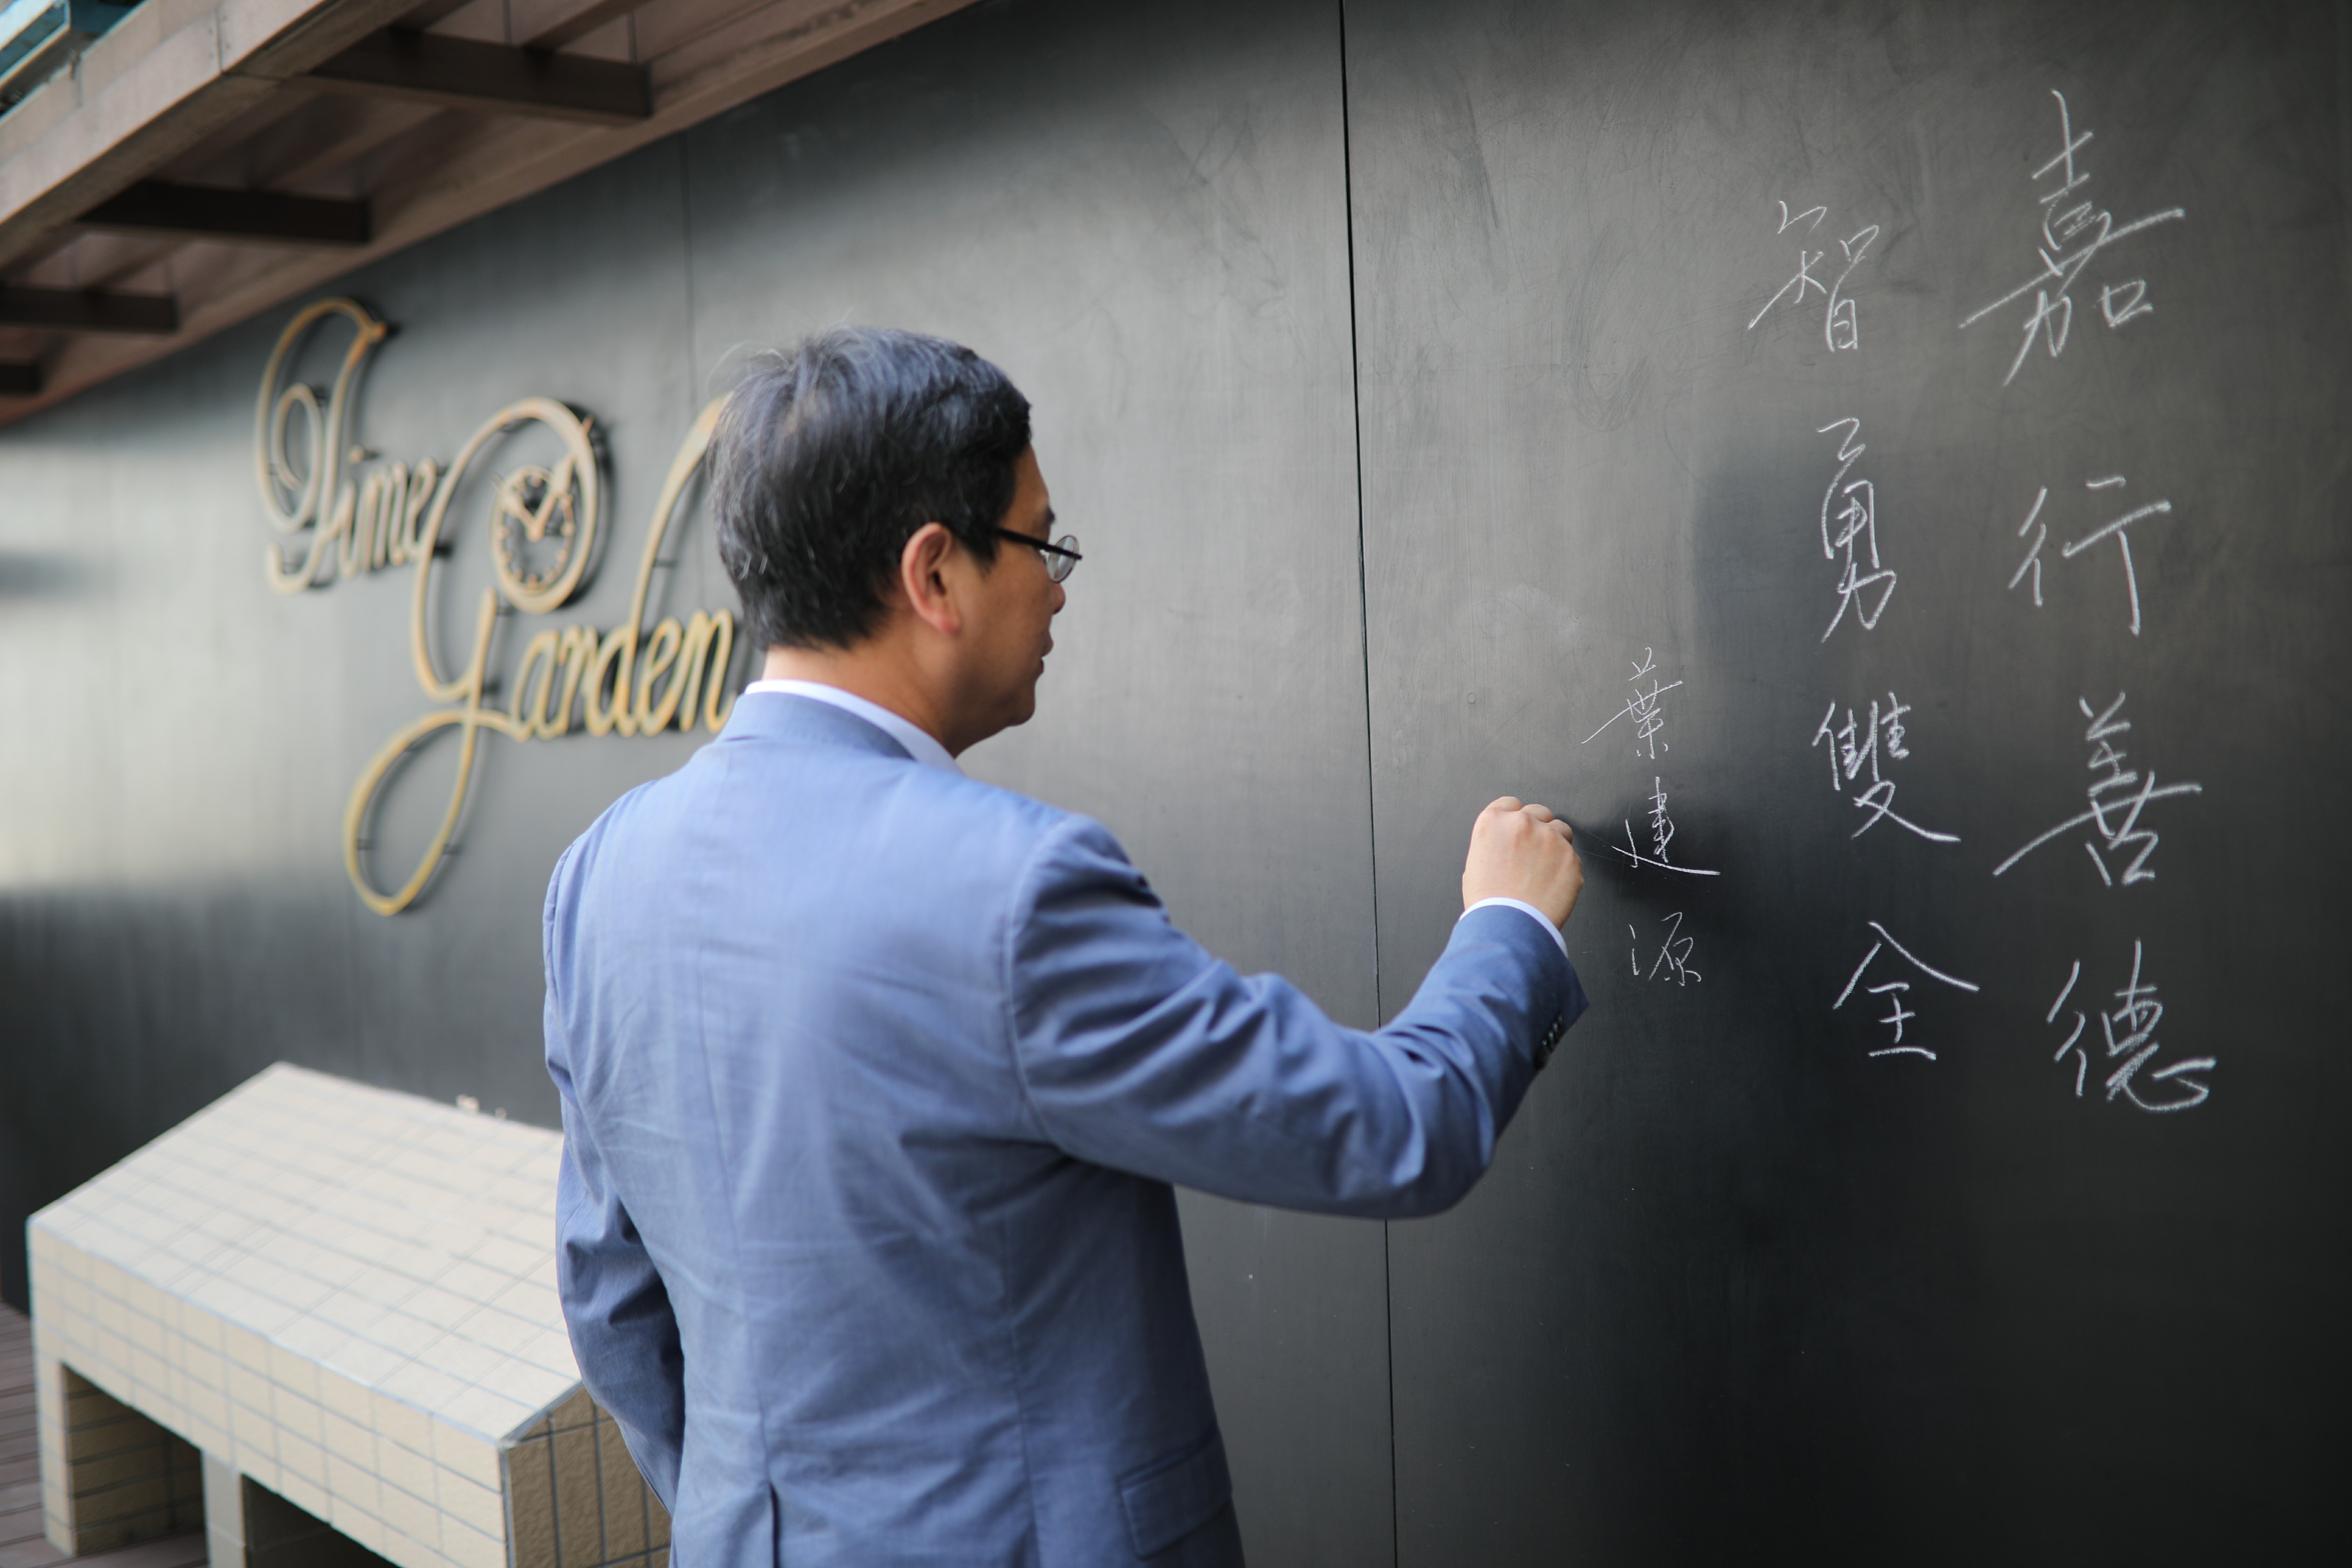 嘉行善德
智勇雙全
葉建源
Time
Garden